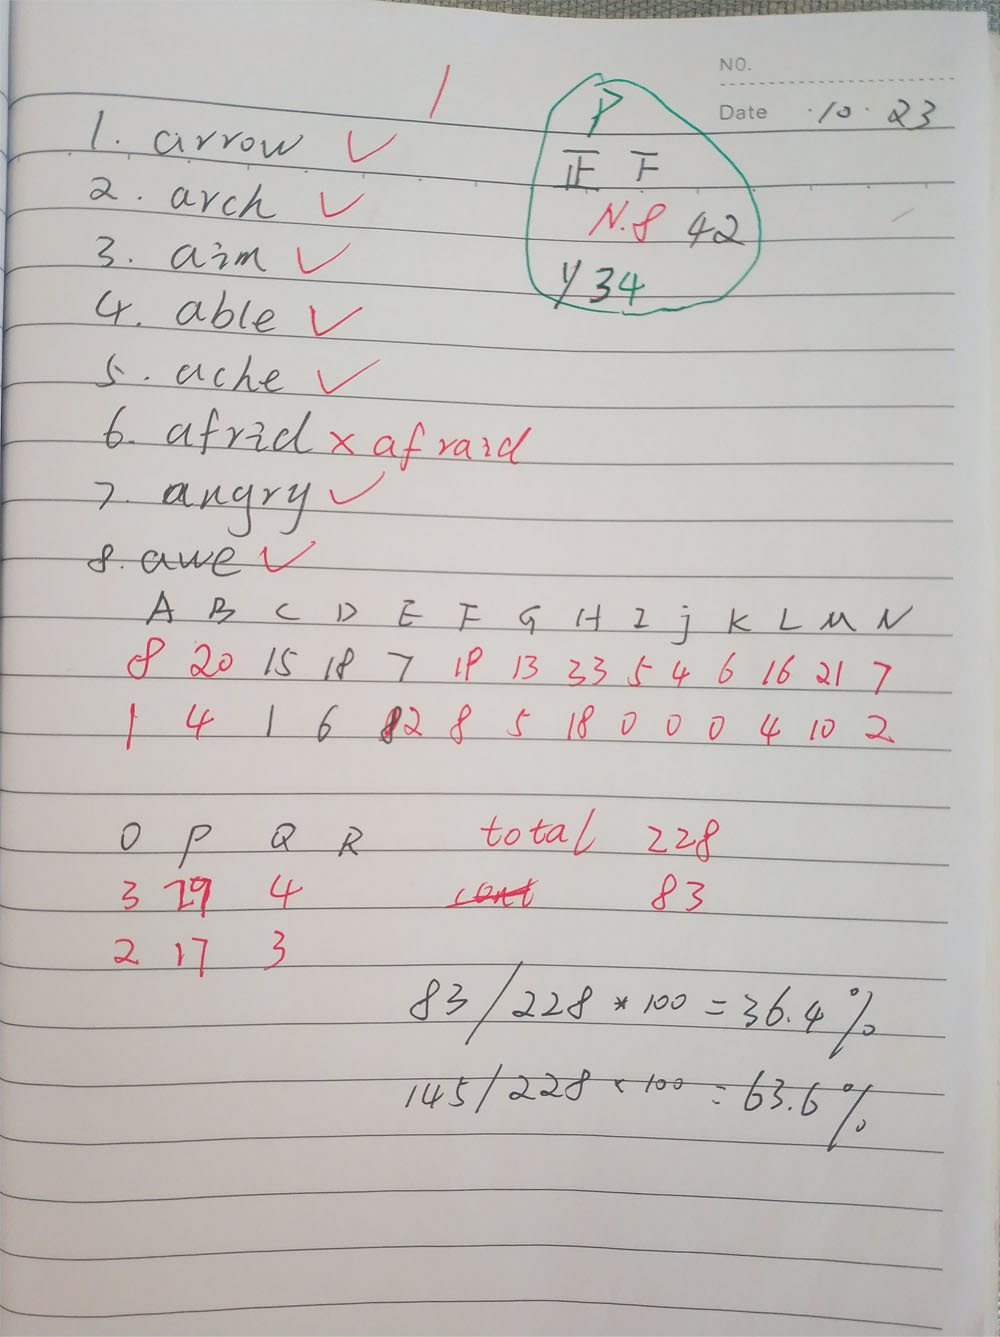 NO.
Date ·10·23
1
P
正 下
N.8 42
Y 34
1. arrow ✓
2. arch ✓
3. aim ✓
4. able ✓
5. ache ✓
6. afrid × afraid
7. angry ✓
8. awe ✓
A B C D E F G H I j K L M N
8 20 15 18 7 18 13 33 5 4 6 16 21 7
1 4 1 6 2 8 5 18 0 0 0 4 10 2
O P Q R total 228
3 29 4 83
2 17 3
83/228 * 100 = 36.4%
145/228 × 100 = 63.6%